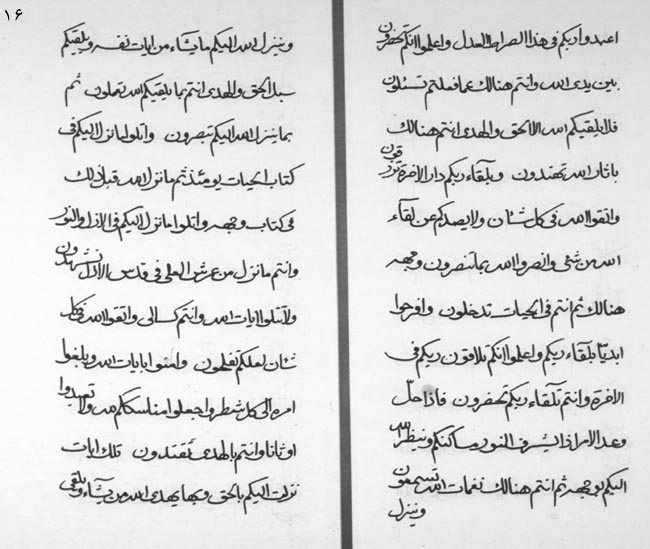 ۱۶
اعبدوا ربكم في هذا الصراط العدل واعلموا انكم تحضرون
بين يدي الله وانتم هنالك عما فعلتم تسئلون
فلا يلقيكم الله الا بحق والهدى انتم هنالك
باثار الله تهتدون وبلقاء ربكم دار الاخرة توقنون
واتقوا الله في كل شان ولا يصدكم عن لقاء
الله من شئ وانصروا الله بما تنصرون وجهه
هنالك ثم انتم في الحيات تدخلون وافرحوا
ابديا بلقاء ربكم واعلموا انكم بلاقون ربكم في
الاخرة وانتم تلقاء ربكم تحضرون فاذا حل
وعد الامر اذا يشرف النور مساكنكم وينظر الله
اليكم بوجهه ثم انتم هنالك نغمات الله تسمعون
وينزل
وينزل الله اليكم ما يشاء من ايات نفسه ويلقيكم
سبل الحق والهدى انتم بما يلقيكم الله تعملون ثم
بما ينزل الله اليكم تبصرون واتلوا ما نزل اليكم في
كتاب الحيات يومئذ ثم ما نزل الله قبل ذلك
في كتاب وجهه واتلوا ما نزل اليكم في الازل والنور
وانتم ما نزل من عرش العلي في قدس الازل تشهدون
ولا تتلوا ايات الله وانتم كسالى واتقوا الله في كل
شان لعلكم تفلحون وامنوا بايات الله وبلغوا
امره الى كل شطر واجعلوا مناسككم لله ولا تعبدوا
اوثانا وانتم بالهدى تقتدون تلك ايات
نزلت اليكم بالحق وبها يهدى الله من يشاء ويلقي